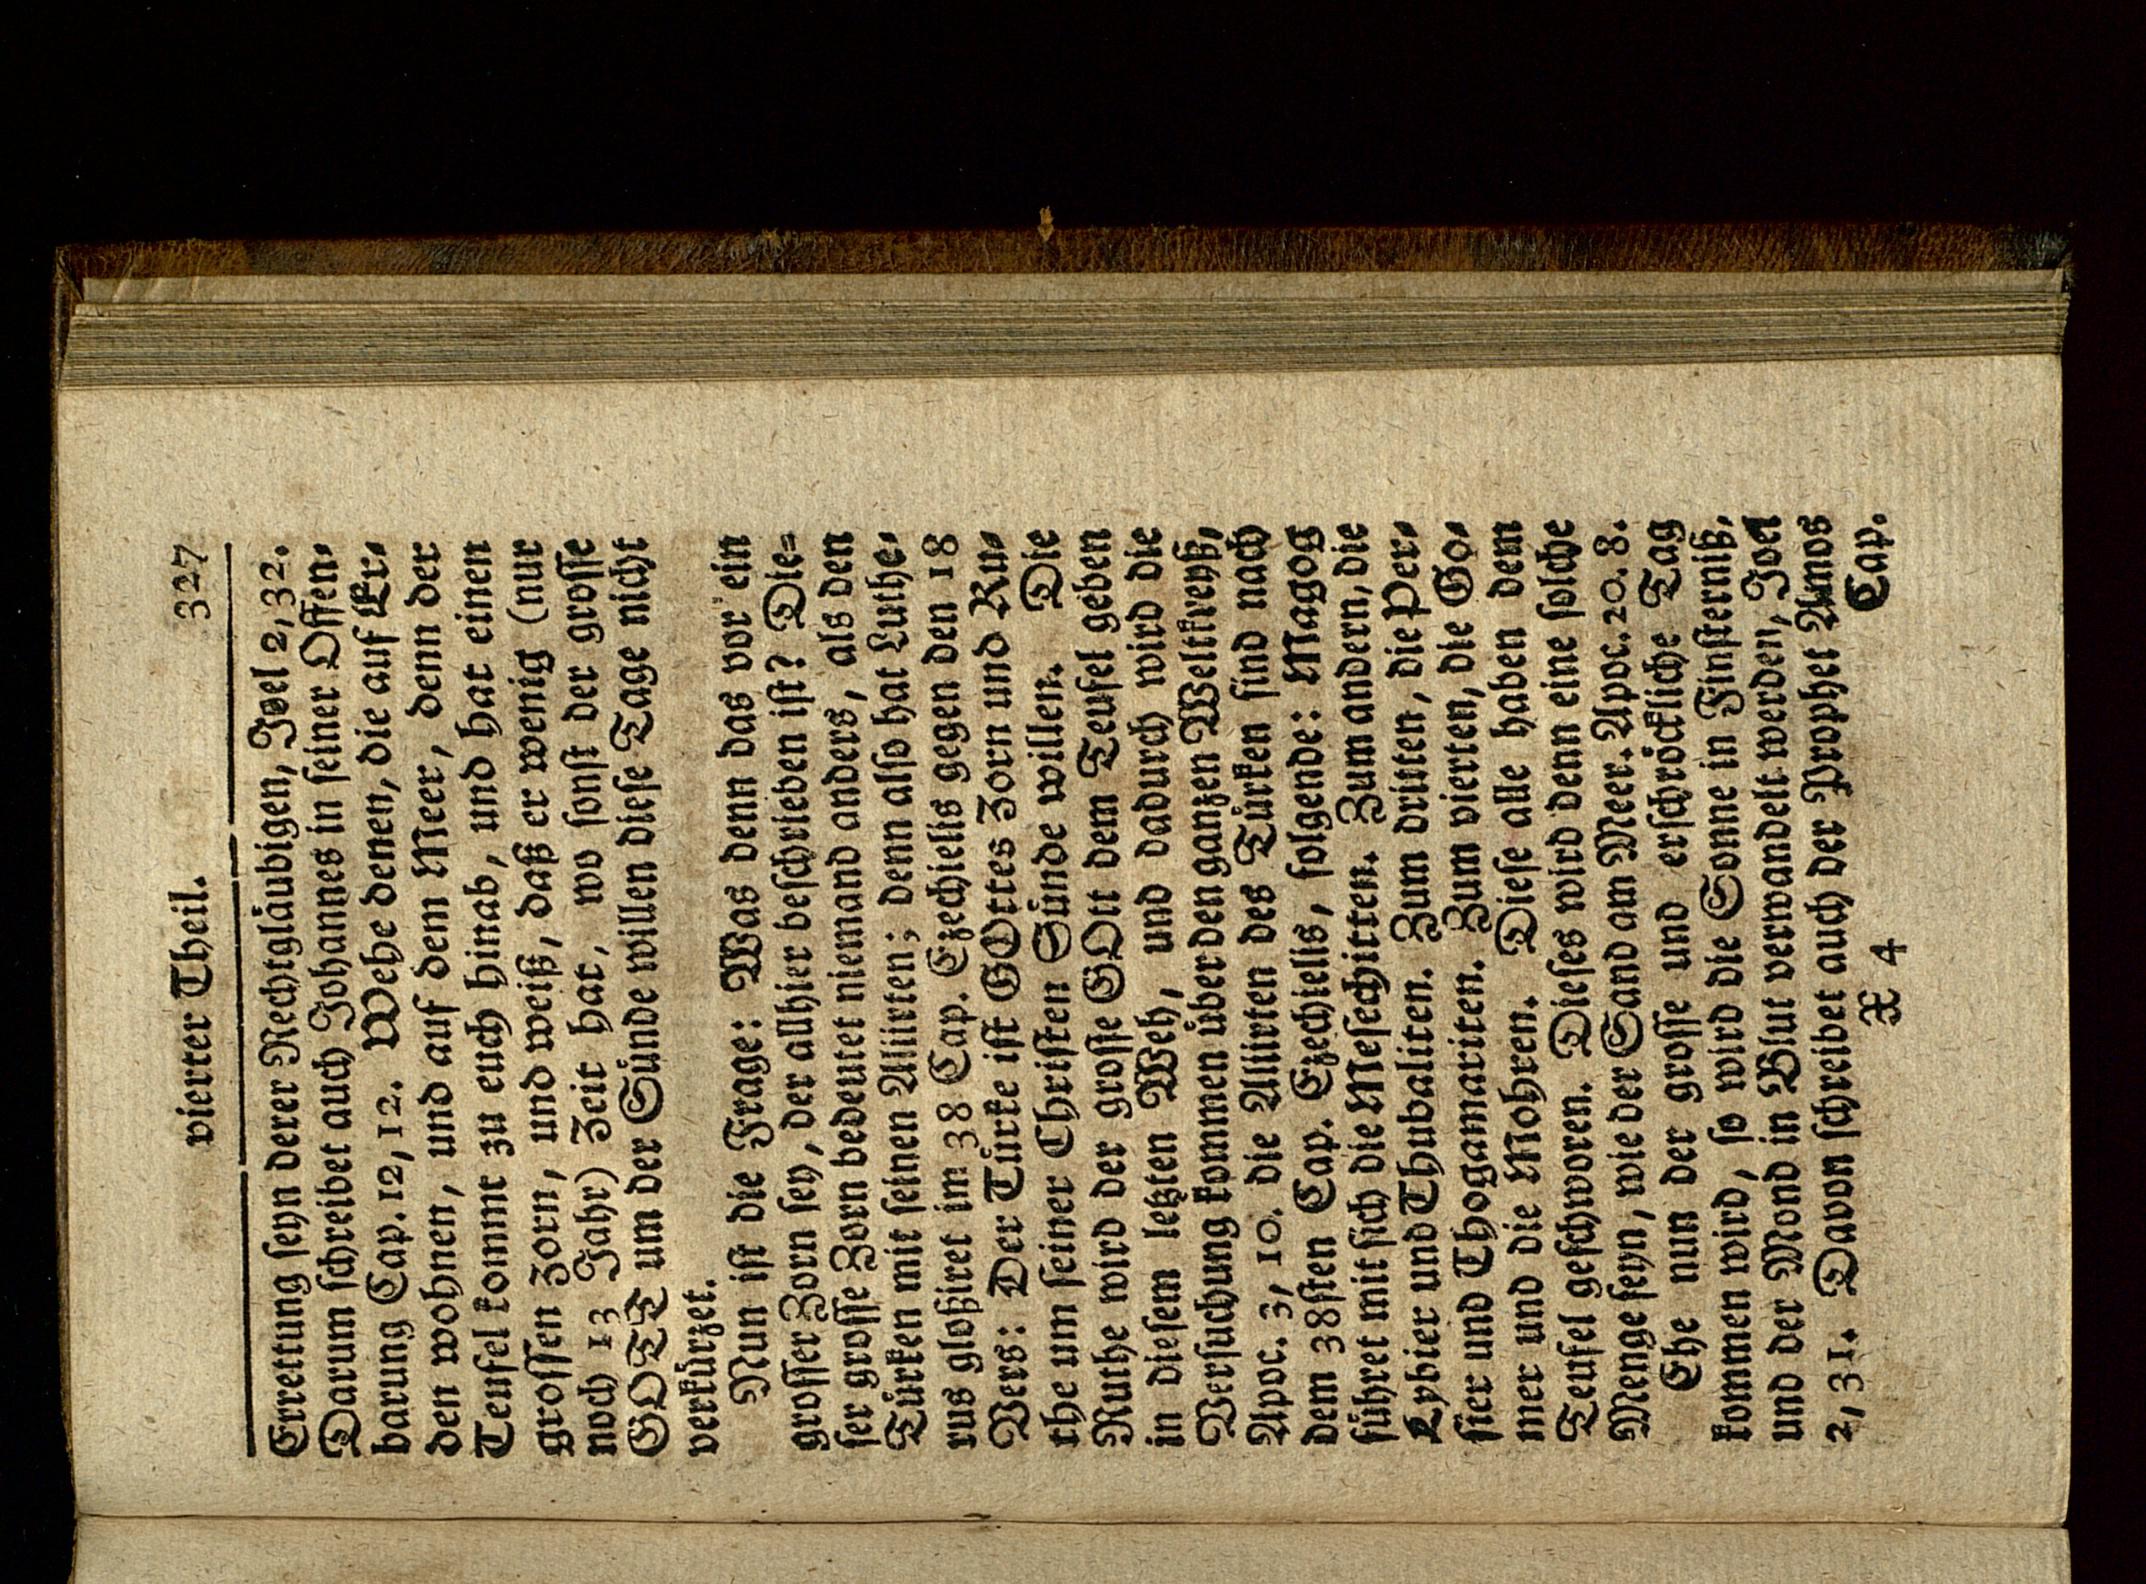 vierter Theil. 327
Errettung seyn derer Rechtgläubigen, Joel 2, 32.
Darum schreibet auch Johannes in seiner Offen-
barung Cap. 12, 12. Wehe denen, die auf Er-
den wohnen, und auf dem Meer, denn der
Teufel kommt zu euch hinab, und hat einen
grossen Zorn, und weiß, daß er wenig (nur
noch 13 Jahr) Zeit hat, wo sonst der grosse
GOTT um der Sünde willen diese Tage nicht
verkürzet.
Nun ist die Frage: Was denn das vor ein
grosser Zorn sey, der allhier beschrieben ist? Die=
ser grosse Zorn bedeutet niemand anders, als den
Türken mit seinen Alliirten; denn also hat Luthe-
rus gloßiret im 38 Cap. Ezechielis gegen den 18
Vers: Der Türke ist GOttes Zorn und Ru-
the um seiner Christen Sünde willen. Die
Ruthe wird der grosse GOtt dem Teufel geben
in diesem letzten Weh, und dadurch wird die
Versuchung kommen über den ganzen Weltkreyß,
Apoc. 3, 10. die Alliirten des Türken sind nach
dem 38sten Cap. Ezechielis, folgende: Magog
führet mit sich die Mesechitten. Zum andern, die
Lybier und Thubaliten. Zum dritten, die Per-
sier und Thogamariten. Zum vierten, die Go-
mer und die Mohren. Diese alle haben dem
Teufel geschworen. Dieses wird denn eine solche
Menge seyn, wie der Sand am Meer. Apoc. 20. 8.
Ehe nun der grosse und erschröckliche Tag
kommen wird, so wird die Sonne in Finsterniß,
und der Mond in Blut verwandelt werden, Joel
2, 31. Davon schreibet auch der Prophet Amos
X 4 Cap.